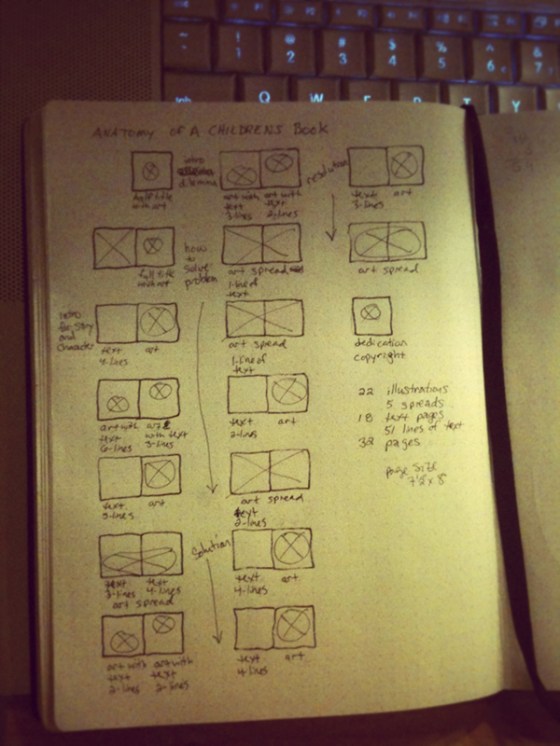 ~ ! @ # $ % ^ &
` 1 2 3 4 5 6 7
tab Q W E R T Y
ANATOMY OF A CHILDRENS Book
half title
with art
full title
and art
intro
for story
and
character
text
4-lines
art
art with
text
6-lines
art
with text
3-lines
text
5-lines
art
text
3-lines
text
4-lines
art spread
art with
text
2-lines
art with
text
2-lines
intro
dilemma
art with
text
3-lines
art with
text
2-lines
how
to
solve
problem
art spread
1-line of
text
art spread
1-line of
text
text
2-lines
art
art spread
text
2-lines
Solution
text
4-lines
art
text
4-lines
art
resolution
text
3-lines
art
art spread
dedication
copyright
22 illustrations
5 spreads
18 text pages
51 lines of text
32 pages
page size